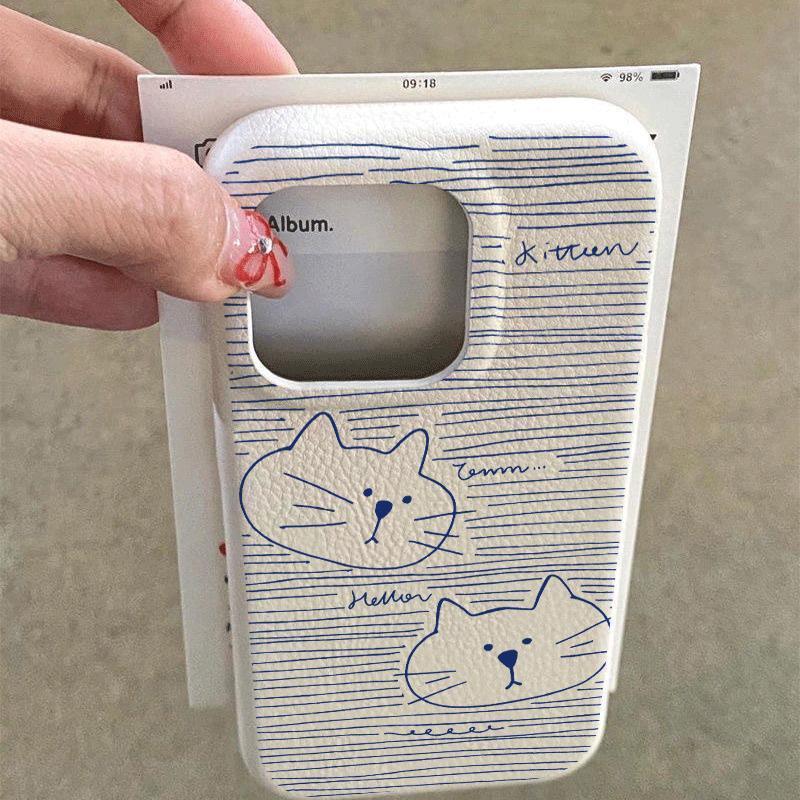 09:18
98%
Album.
Kitten
Hello
eeeee